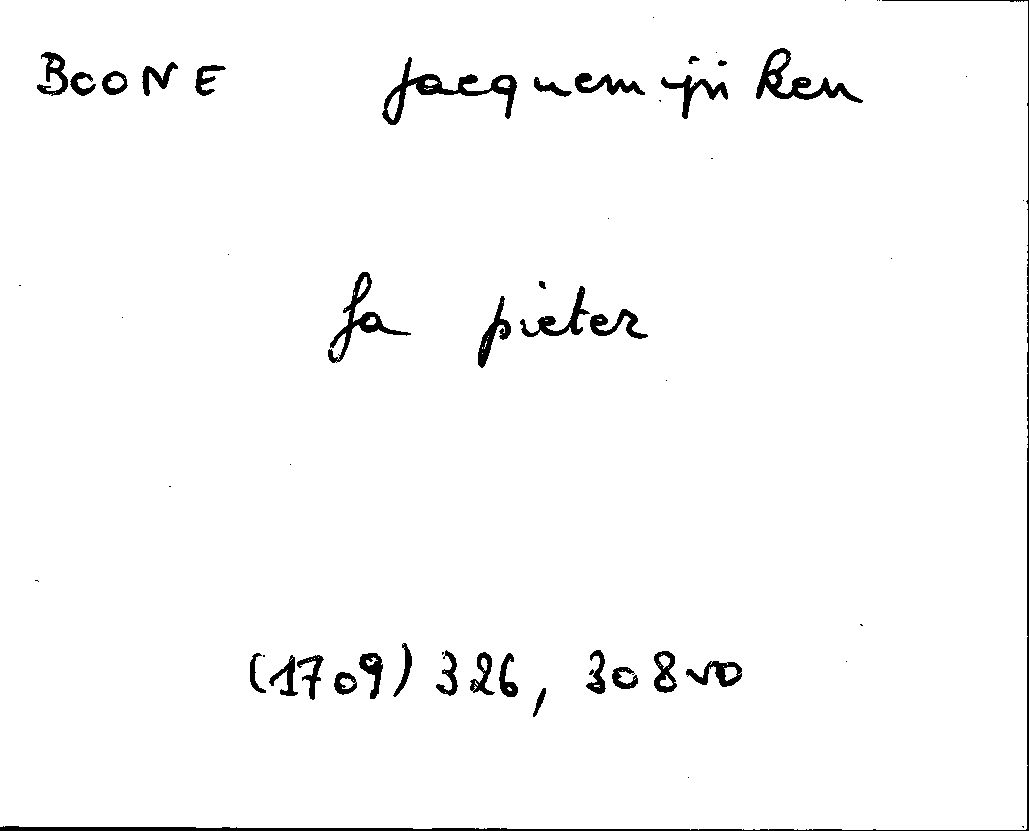 BOONE Jacquemijnken
fa pieter
(1709) 326, 308vo